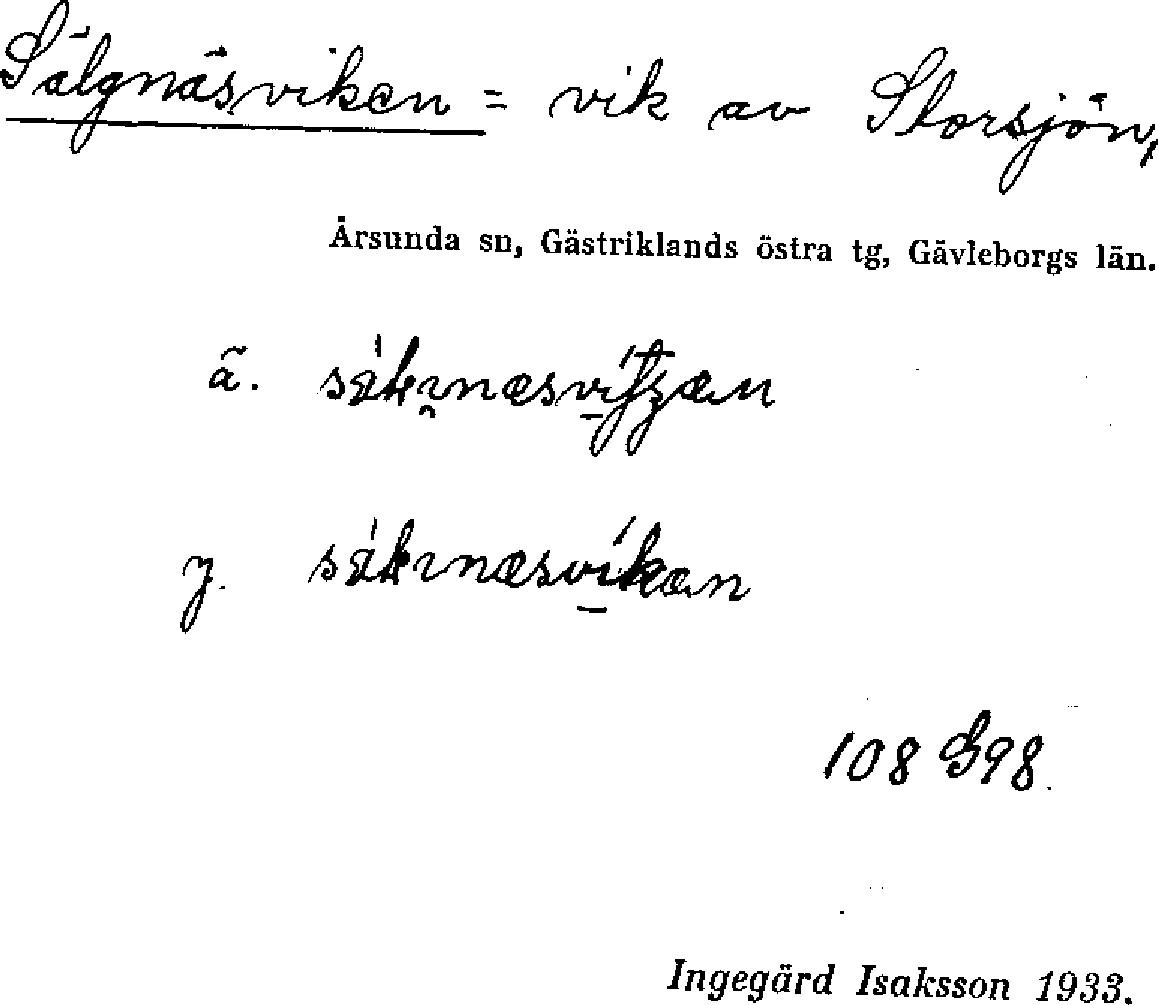 Sälgnäsviken = vik av Storsjön,
Årsunda sn, Gästriklands östra tg, Gävleborgs län.
ä.
y.
108 G98.
Ingegärd Isaksson 1933.